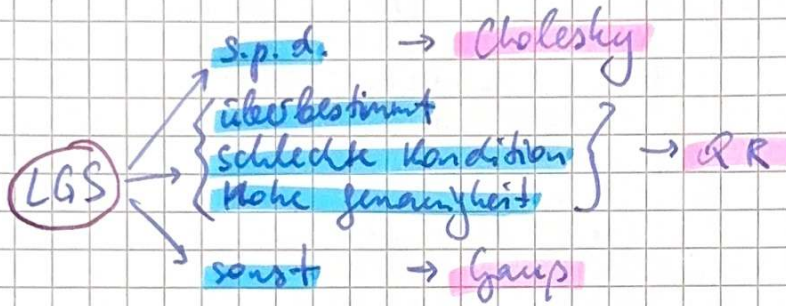 s.p.d. → Cholesky
überbestimmt
LGS → schlechte Kondition → QR
Hohe genauigkeit
sonst → Gauß